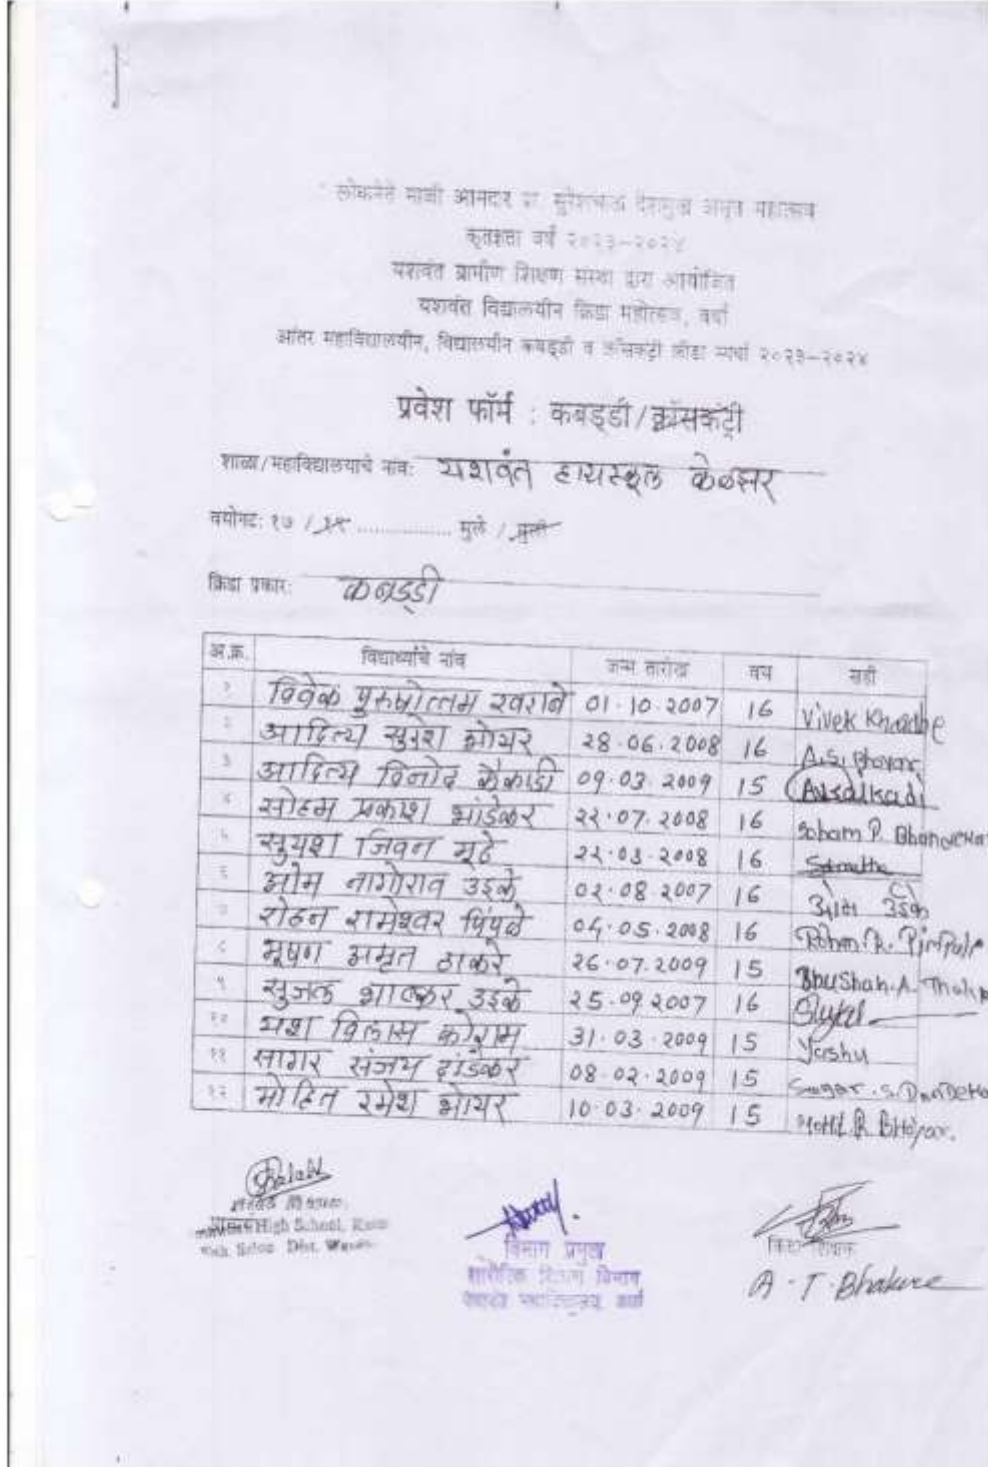 लोकनेते माजी आमदार प्रा. सुरेशभाऊ देशमुख अमृत महोत्सव
कृतज्ञता वर्ष २०२३-२०२४
यशवंत ग्रामीण शिक्षण संस्था द्वारा आयोजित
यशवंत विद्यालयीन क्रिडा महोत्सव, वर्धा
आंतर महाविद्यालयीन, विद्यालयीन कबड्डी व क्रॉसकंट्री क्रीडा स्पर्धा २०२३-२०२४
प्रवेश फॉर्म : कबड्डी/क्रॉसकंट्री
शाळा/महाविद्यालयाचे नांव: यशवंत हायस्कूल केळझर
वयोगट: १७ / १९ .................. मुले / मुली
क्रिडा प्रकार: कबड्डी
अ.क्र. विद्यार्थ्यांचे नांव जन्म तारीख वय सही
१ विवेक पुरुषोत्तम खराबे 01.10.2007 16 Vivek
२ आदित्य सुरेश भोयर 28.06.2008 16 A.S. Bhoyar
३ आदित्य विनोद कैकाडी 09.03.2009 15
४ सोहम प्रकाश भांडेकर 22.07.2008 16 Soham P.
५ सुयश जिवन मुढे 22.03.2008 16
६ ओम नागोराव उइके 02.08.2007 16 ओम उईके
७ रोहन रामेश्वर पिंपळे 04.05.2008 16 Rohan.R.
८ भूषण अमृत ठाकरे 26.07.2009 15 Bhushan.A.
९ सुजल भास्कर उइके 25.09.2007 16 Sujal
१० यश विलास कोराम 31.03.2009 15 Yashu
११ सागर संजय दांडेकर 08.02.2009 15 Sagar.S.
१२ मोहित रमेश भोयर 10.03.2009 15 Mohit R Bhoyar.
High School,
Dist.
विभाग प्रमुख
क्रिडा शिक्षक
शारीरिक शिक्षण विभाग
A. T. Bhakare
यशवंत महाविद्यालय, वर्धा